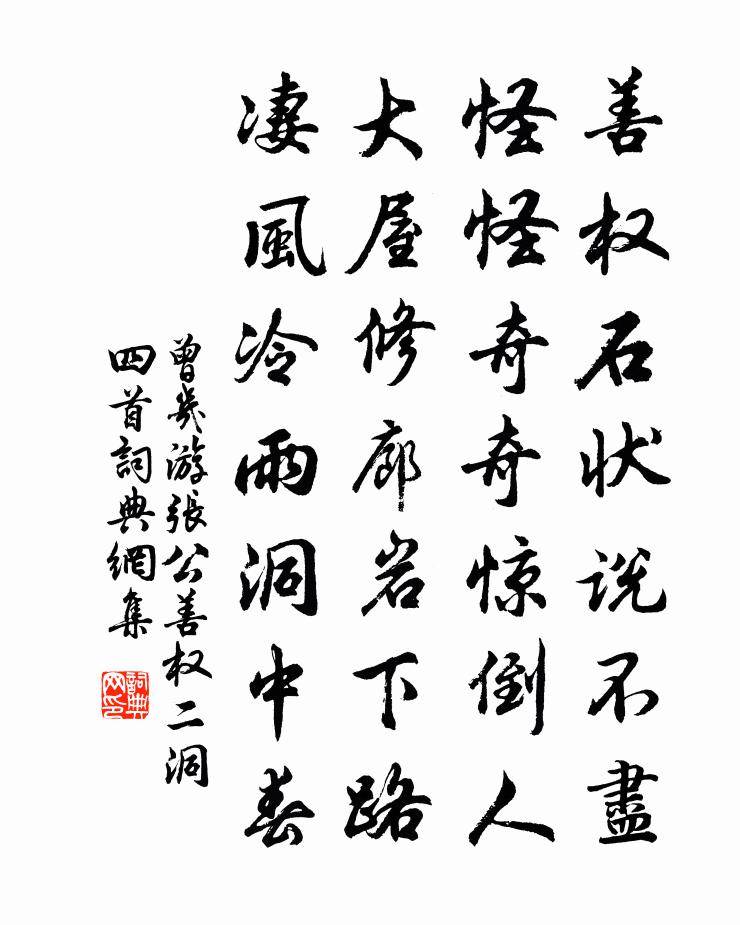 善权石状说不盡
怪怪奇奇惊倒人
大屋修廊岩下路
凄風冷雨洞中春
曾幾游張公善权二洞
四首詞典網集
詞典网印